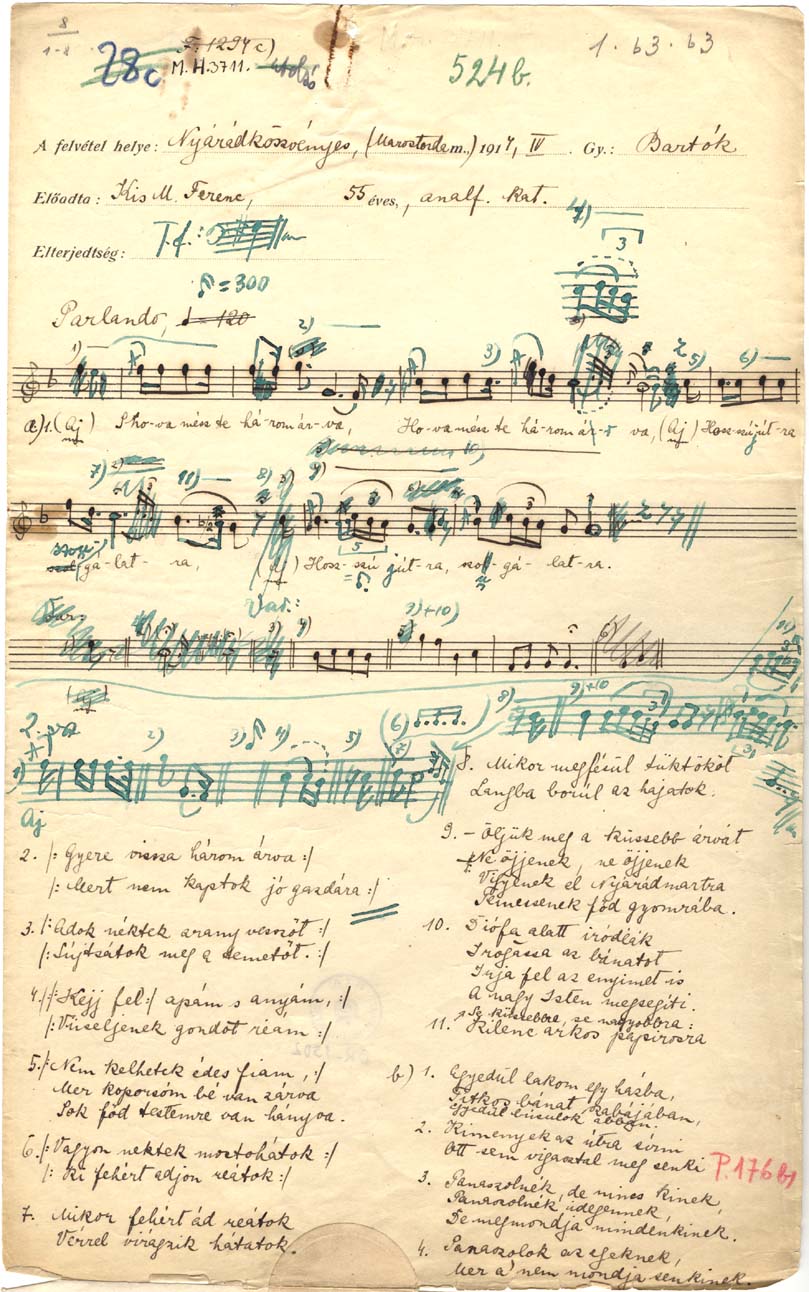 8
1-8
28c
F. 1294 c)
M. H. 3711.
utolsó
524 b.
1. b3. b3
A felvétel helye: Nyárádköszvényes, (Marostorda m.,) 1914, IV. Gy.: Bartók
Előadta: Kis M. Ferenc, 55 éves, analf. kat.
Elterjedtség: T.f.:
♪ = 300
Parlando, ♩ = 120
a) 1. (Aj) S ho-va mész te há-rom ár-va, Ho-va mész te há-rom ár-va, (Aj) Hosz-szú jút-ra
szol-gá-lat-ra, (Aj) Hosz-szú jút-ra, szol-gá-lat-ra.
Var.:
2. pra
Aj
2. /: Gyere vissza három árva :/
/: Mert nem kaptok jó gazdára :/
3. /: Adok néktek arany vesszőt :/
/: Sújtsátok meg a temetőt. :/
4. /: /: Kejj fel :/ apám s anyám, :/
/: Viseljenek gondot réám :/
5. /: Nem kelhetek édes fiam, :/
Mer koporsóm bé van zárva
Sok főd testemre van hányva.
6. /: Vagyon nektek mostohátok :/
/: Ki fehért adjon reátok :/
7. Mikor fehért ád reátok
Vérrel virágzik hátatok.
8. Mikor megfésül tüktököl
Langba borúl az hajatok.
9. – Öljük meg a küssebb árvát
– Ne öjjenek, ne öjjenek
Vigyenek el Nyárádmartra
Temessenek főd gyomrába.
10. Diófa alatt iródĺák
Irogássa az bánatot
Irja fel az enyimet is
A nagy Isten megsegíti.
11. Se küssebbre, se nagyobbra:
Kilenc árkos papirosra
b) 1. Egyedül lakom egy házba,
Titkos bánat szabájában,
Egyedül búsulok abban.
2. Kimenyek az útra sírni
Ott sem vigasztal meg senki
P. 176 b)
3. Panaszolnék, de nincs kinek,
Panaszolnék üdegennek,
De megmondja mindenkinek.
4. Panaszolok az egeknek,
Mer a' nem mondja senkinek.